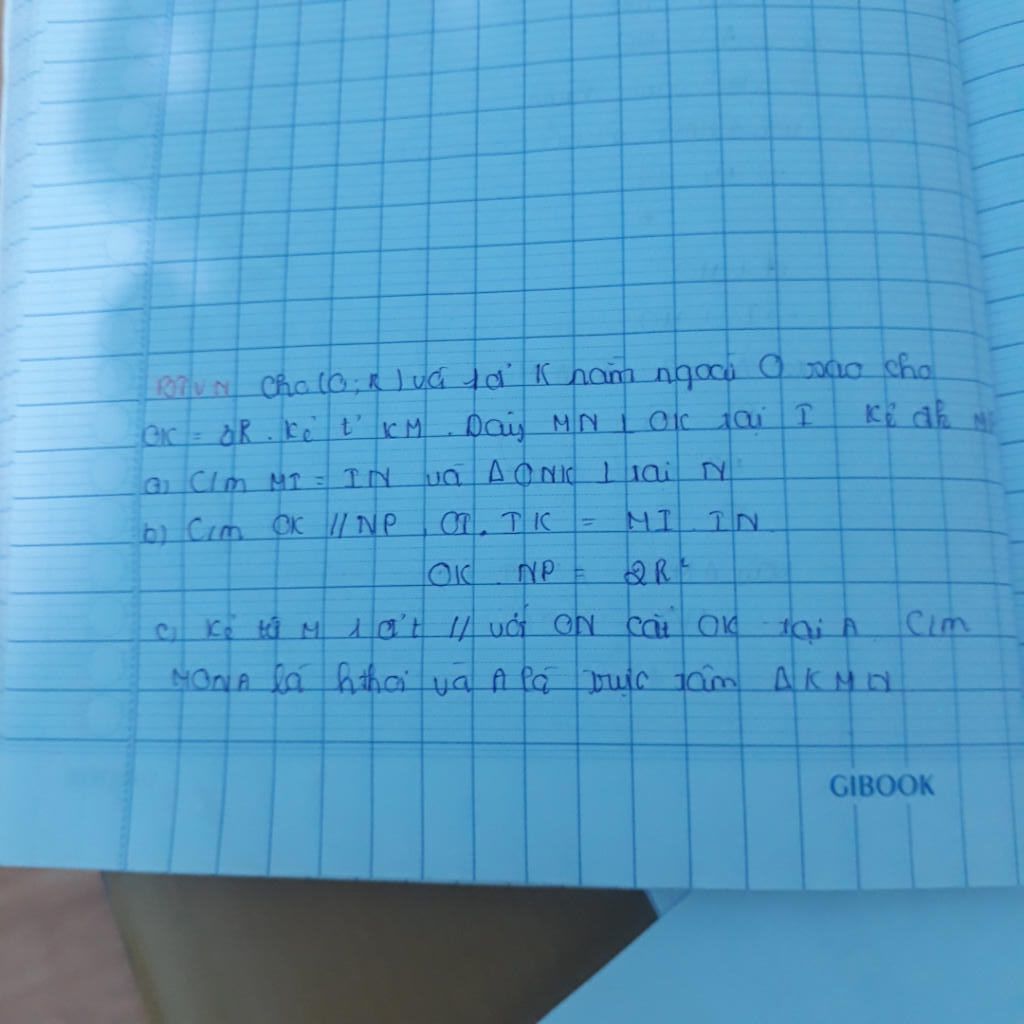 BTVN Cho (O; R) và 1 đ' K nằm ngoài O sao cho
OK = 2R. Kẻ t² KM. Dây MN ⊥ OK tại I Kẻ đk
a) C/m MI = IN và Δ ONK ⊥ tại N
b) C/m OK // NP, OI. IK = MI. IN
OK. NP = 2R²
c) Kẻ từ M 1 đ't // với ON cắt OK tại A. C/m
MONA là hthoi và A là trực tâm Δ KMN
GIBOOK